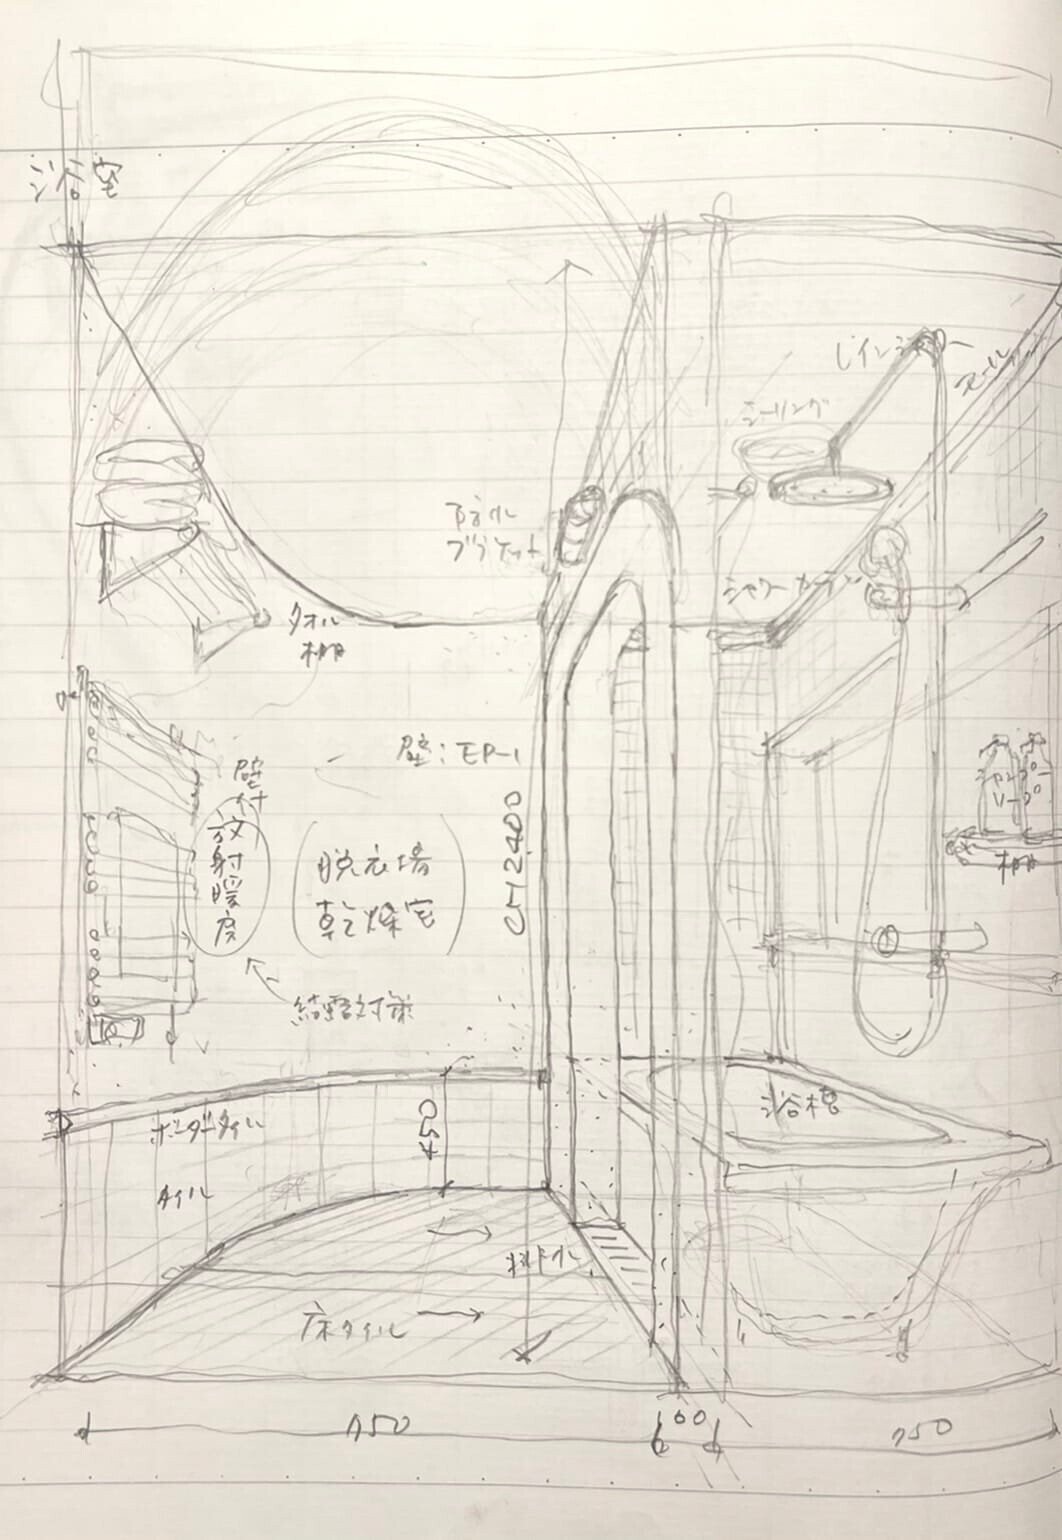 浴室
レインシャワー
シーリング
防水
ブラケット
シャワーカーテン
タオル
棚
壁：EP-1
壁付
放射暖房
脱衣場
乾燥室
CH2400
結露対策
シャンプー
ソープ
棚
ボーダータイル
450
浴槽
タイル
床タイル
750